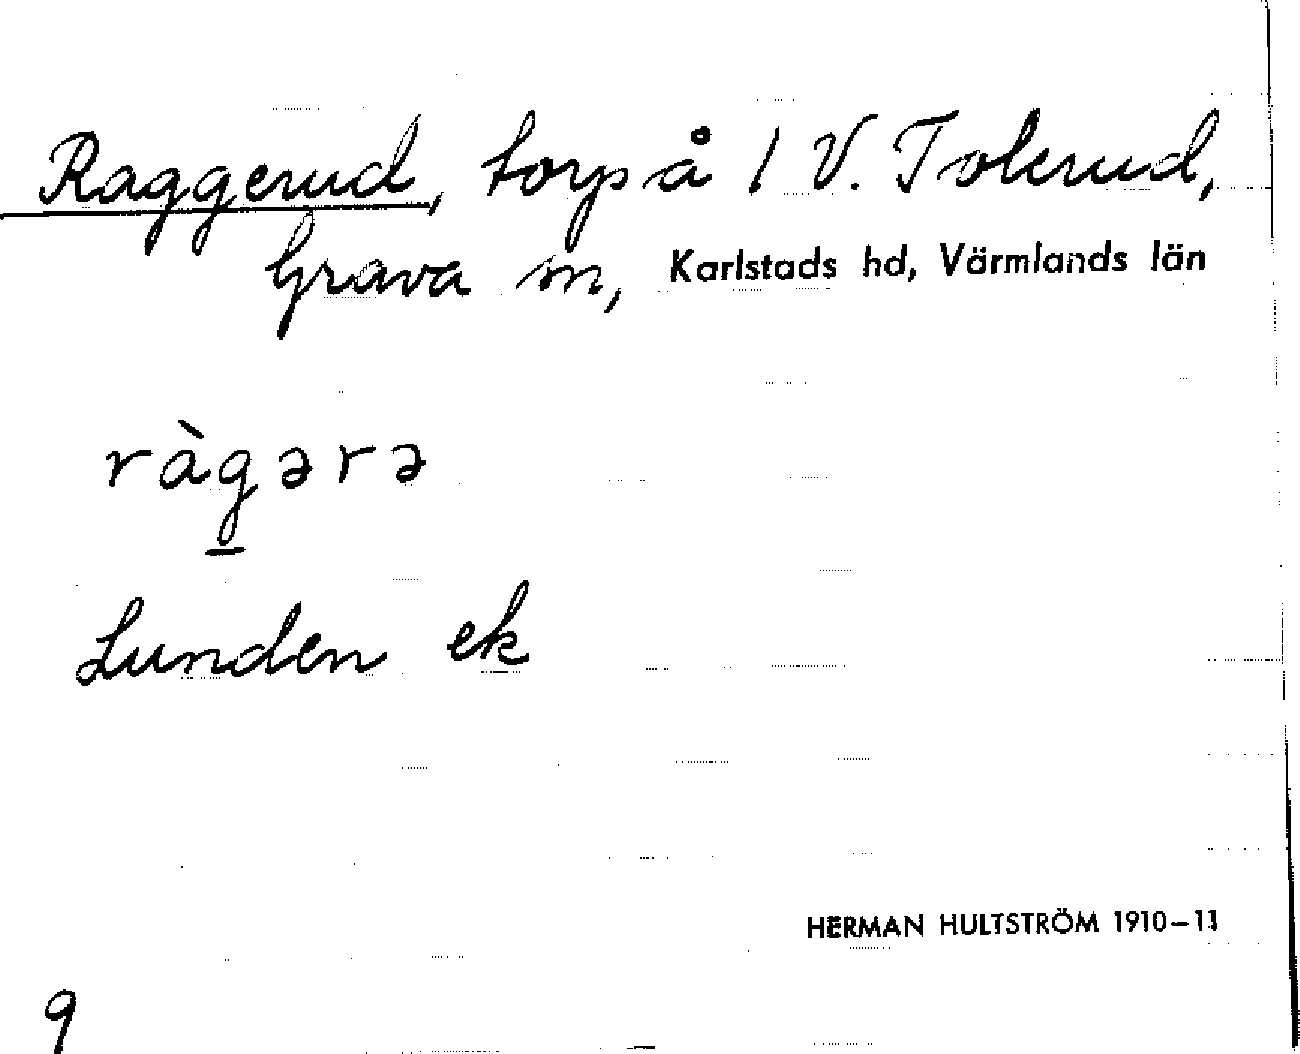 Raggerud, torp å 1 V. Tolerud,
Grava sn, Karlstads hd, Värmlands län
ràg̱ərə
Lunden ek
HERMAN HULTSTRÖM 1910–11
9